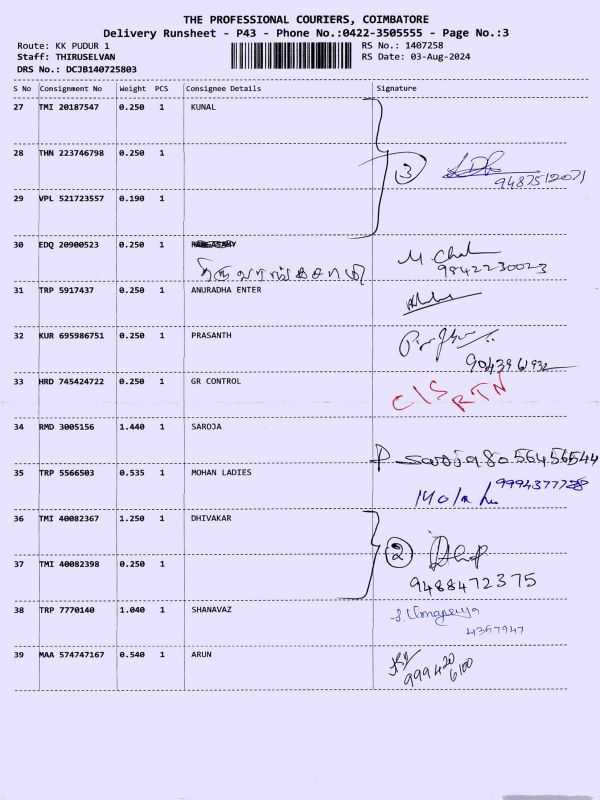 THE PROFESSIONAL COURIERS, COIMBATORE
Delivery Runsheet - P43 - Phone No.:0422-3505555 - Page No.:3
Route: KK PUDUR 1 RS No.: 1407258
Staff: THIRUSELVAN RS Date: 03-Aug-2024
DRS No.: DCJB140725803
S No Consignment No Weight PCS Consignee Details Signature
27 TMI 20187547 0.250 1 KUNAL
28 THN 223746798 0.250 1
3
9487512071
29 VPL 521723557 0.190 1
30 EDQ 20900523 0.250 1
9842230023
31 TRP 5917437 0.250 1 ANURADHA ENTER
32 KUR 695986751 0.250 1 PRASANTH
33 HRD 745424722 0.250 1 GR CONTROL C/S RTN
34 RMD 3005156 1.440 1 SAROJA
saroja 98056456544
35 TRP 5566503 0.535 1 MOHAN LADIES
36 TMI 40082367 1.250 1 DHIVAKAR
2
37 TMI 40082398 0.250 1
9488472375
38 TRP 7770140 1.040 1 SHANAVAZ
4367947
39 MAA 574747167 0.540 1 ARUN
999420
6100